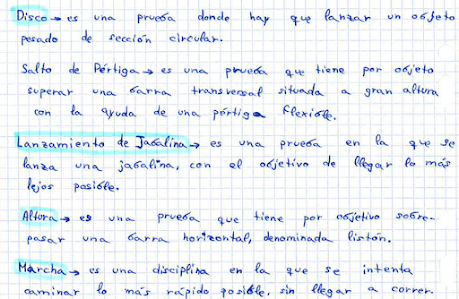 Disco → es una prueba donde hay que lanzar un objeto
pesado de sección circular.
Salto de Pértiga → es una prueba que tiene por objeto
superar una barra transversal situada a gran altura
con la ayuda de una pértiga flexible.
Lanzamiento de Jabalina → es una prueba en la que se
lanza una jabalina, con el objetivo de llegar lo más
lejos posible.
Altura → es una prueba que tiene por objetivo sobre-
pasar una barra horizontal, denominada listón.
Marcha → es una disciplina en la que se intenta
caminar lo más rápido posible, sin llegar a correr.